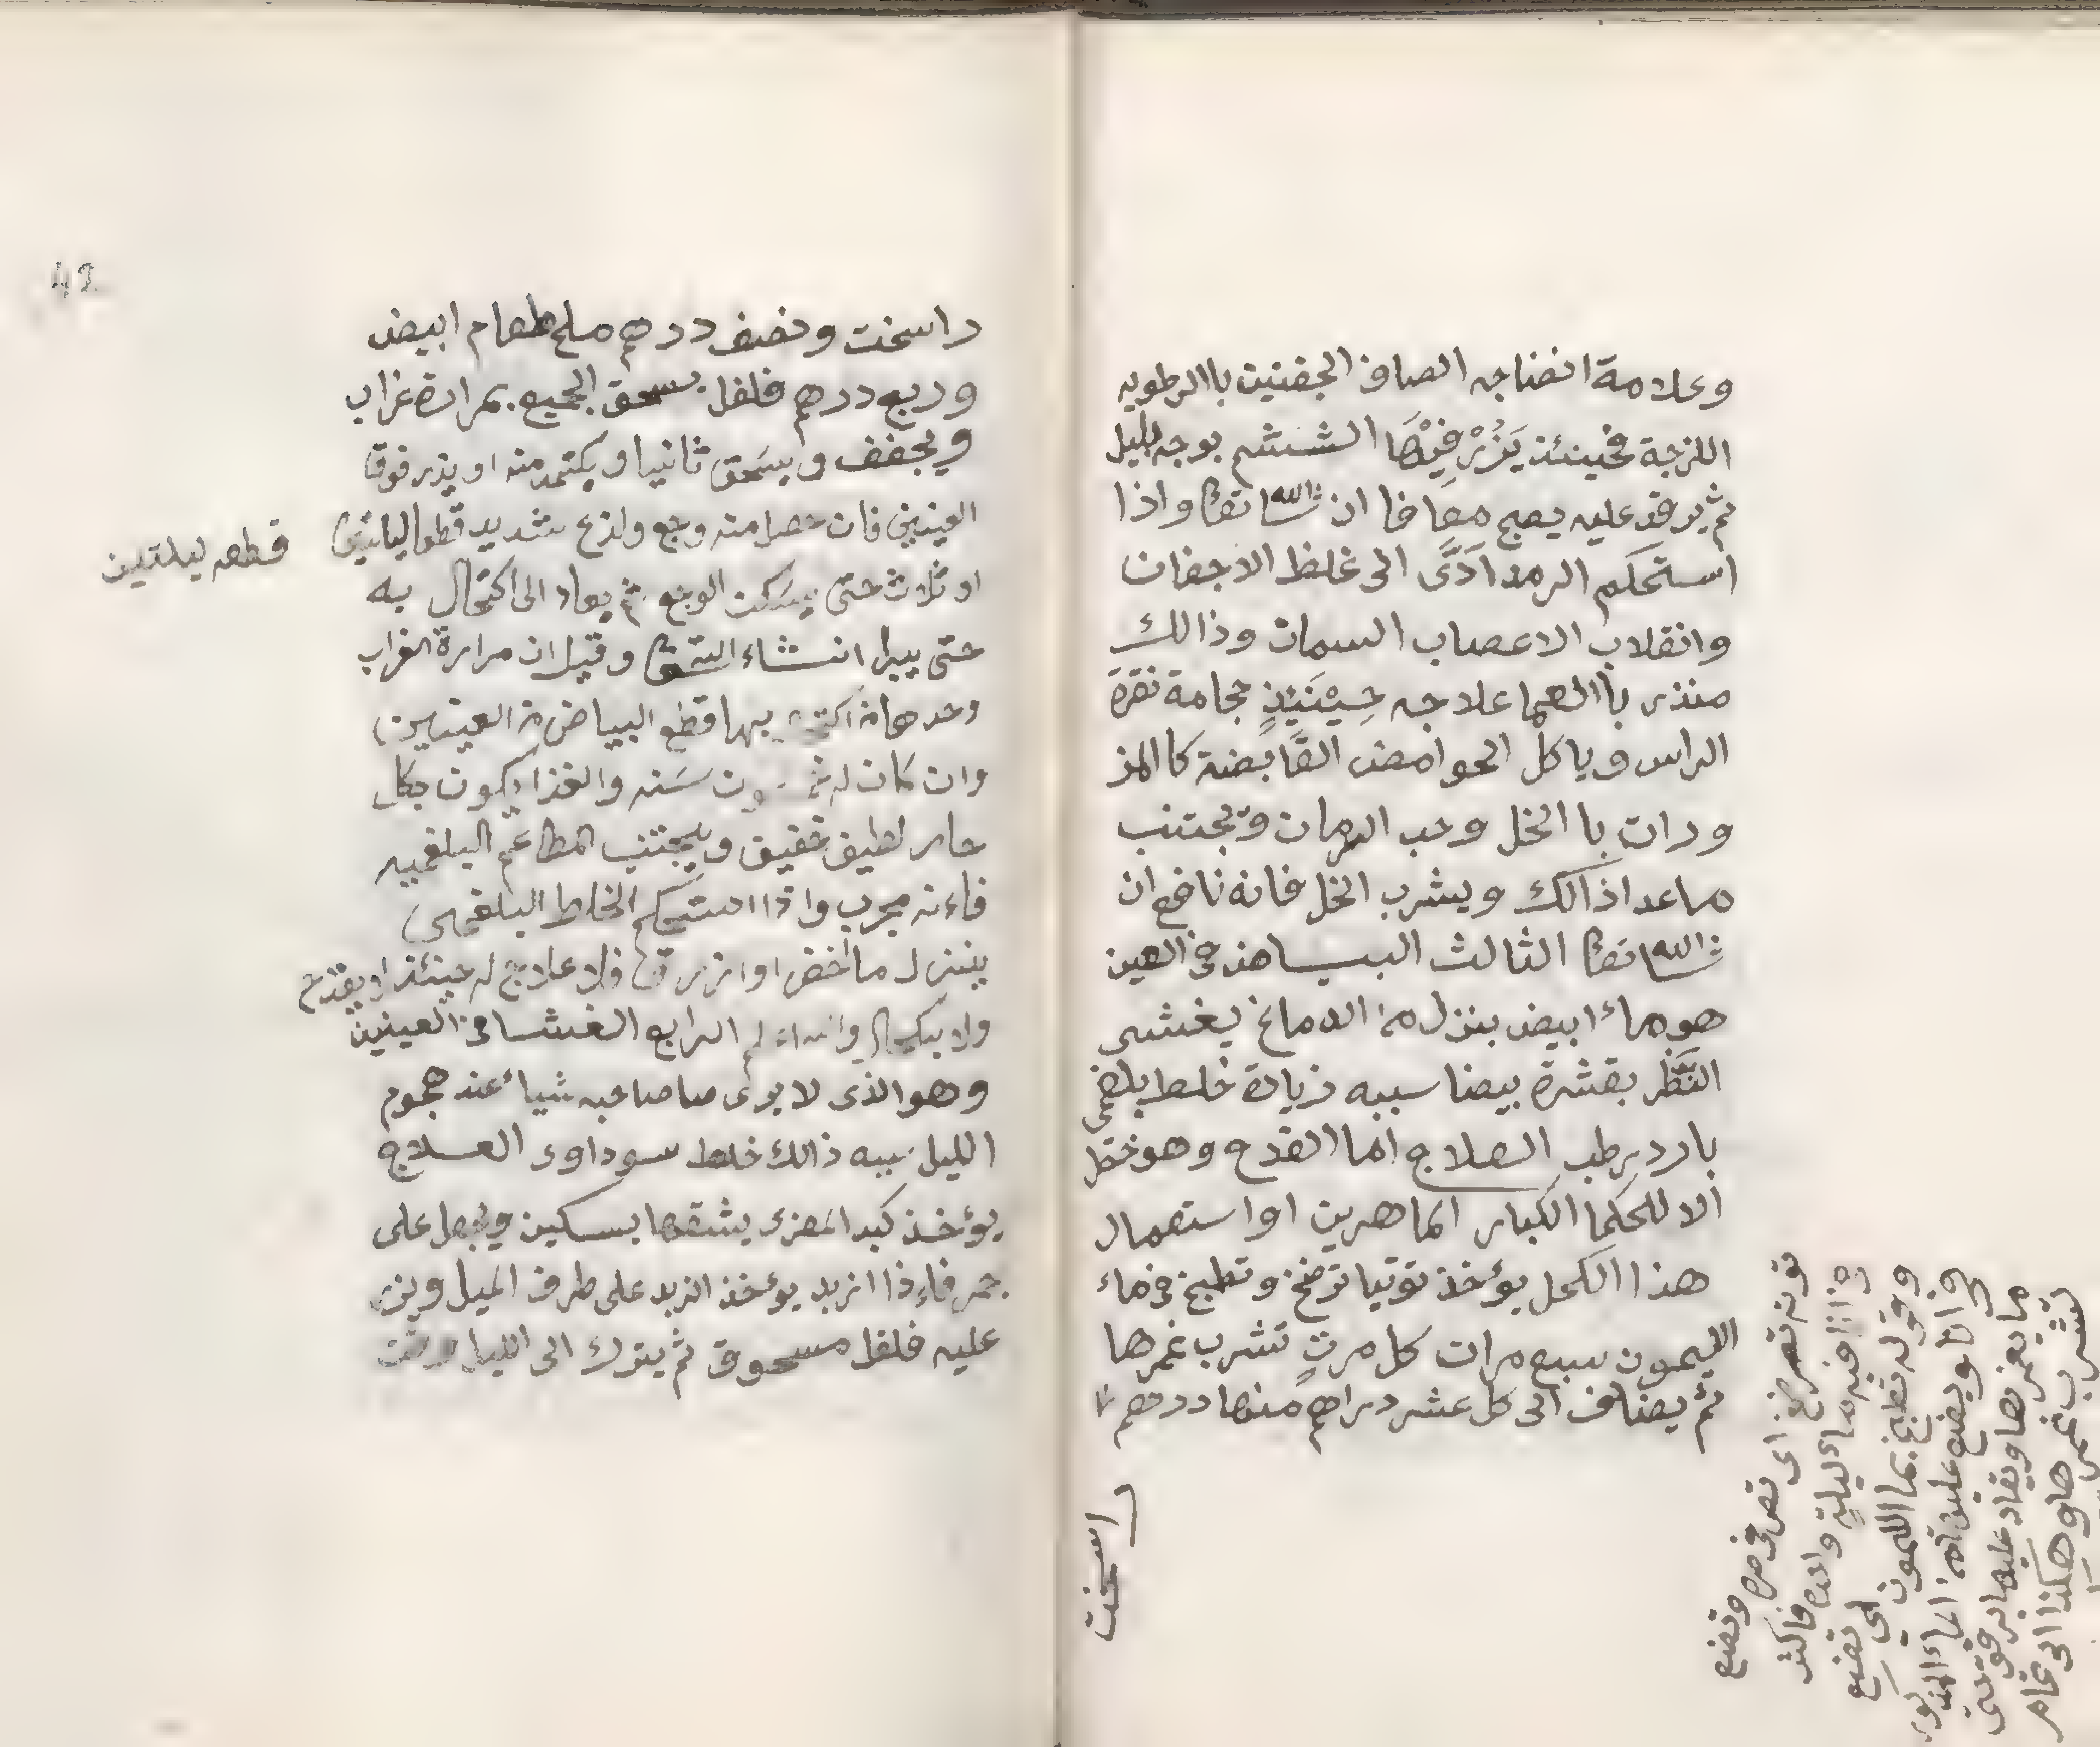 وعلامة انضاجه الصاق الجفنين باالرطوبه
اللزجة فحينئذ يَزُرْ فِيْهَا الششم بوجه ليل
ثم يرقد عليه يصبح معافا ان شاالله تعا واذا
استحكم الرمد ادَّى الى غلظ الاجفان
وانقلاب الاعصاب السمان وذالك
منذر باالعما علاجه حِيْنَئِذٍ حجامة نقرة
الراس وياكل الحوامض القَابضة كاالمز
ورات باالخل وحب الرمان ويجتنب
ماعدا ذالك ويشرب الخل فانه نافع ان
شاالله تعا الثالث البياض في العين
هو ماء ابيض ينزل من الدماغ يغشى
النَّظَر بقشرة بيضا سببه زيادة خلط بلغمى
بارد رطب العلاج اما القدح وهو خطر
الا للحكما الكبار الماهرين او استعمال
هذا الكحل يؤخذ توتيا ترضخ وتطبخ في ماء
الليمون سبع مرات كل مرتٍ تشرب غمرها
ثم يضاف الى كل عشر دراهم منها درهم
راسخت
توته ترضخ اى ترض وتضع
فيه ماء ليلة
وقوله تطبخ بما الليمون اى تضع
ويضع عليه الماء
ما يغمرها ويقاد عليها برفق حتى
تشرب غمرها وهكذا الى تمام
42
راسخت ونصف درهم ملح طعام ابيض
وربع درهم فلفل يسحق الجميع بمرارة غراب
ويجفف ويسَحق ثانيا ويكتحل منه او يذر فوق
العينين فان حصل منه وجع ولذع شديد قطع ليلتين
قطعه ليلتين
او ثلاث حتى يسكن الوجع ثم يعاد الى اكتحال به
حتى يبرا انشاء الله تعا وقيل ان مرارة الغراب
وحدها اذا بها قطع البياض من العينين
وان كان له سَنه والغذا يكون بكل
حار لطيف خفيف ويجتنب المطاعم البلغميه
فاءنه مجرب واذا استحكم الخلط البلغمى
ينزل ما اخضر او ازرق فلا علاج له حينئذ لا بقدح
ولا بكحال الرابع الغشا في العينين
وهو الذى لا يرى صا صاحبه شياء عند هجوم
الليل سببه ذالك خلط سوداوى العلاج
يؤخذ كبد المعزى يشقها بسكين ويجعل على
جمر فاءذا ازبد يؤخذ الزبد على طرف الميل ويزر
عليه فلفل مسحوق ثم يترك الى الليل